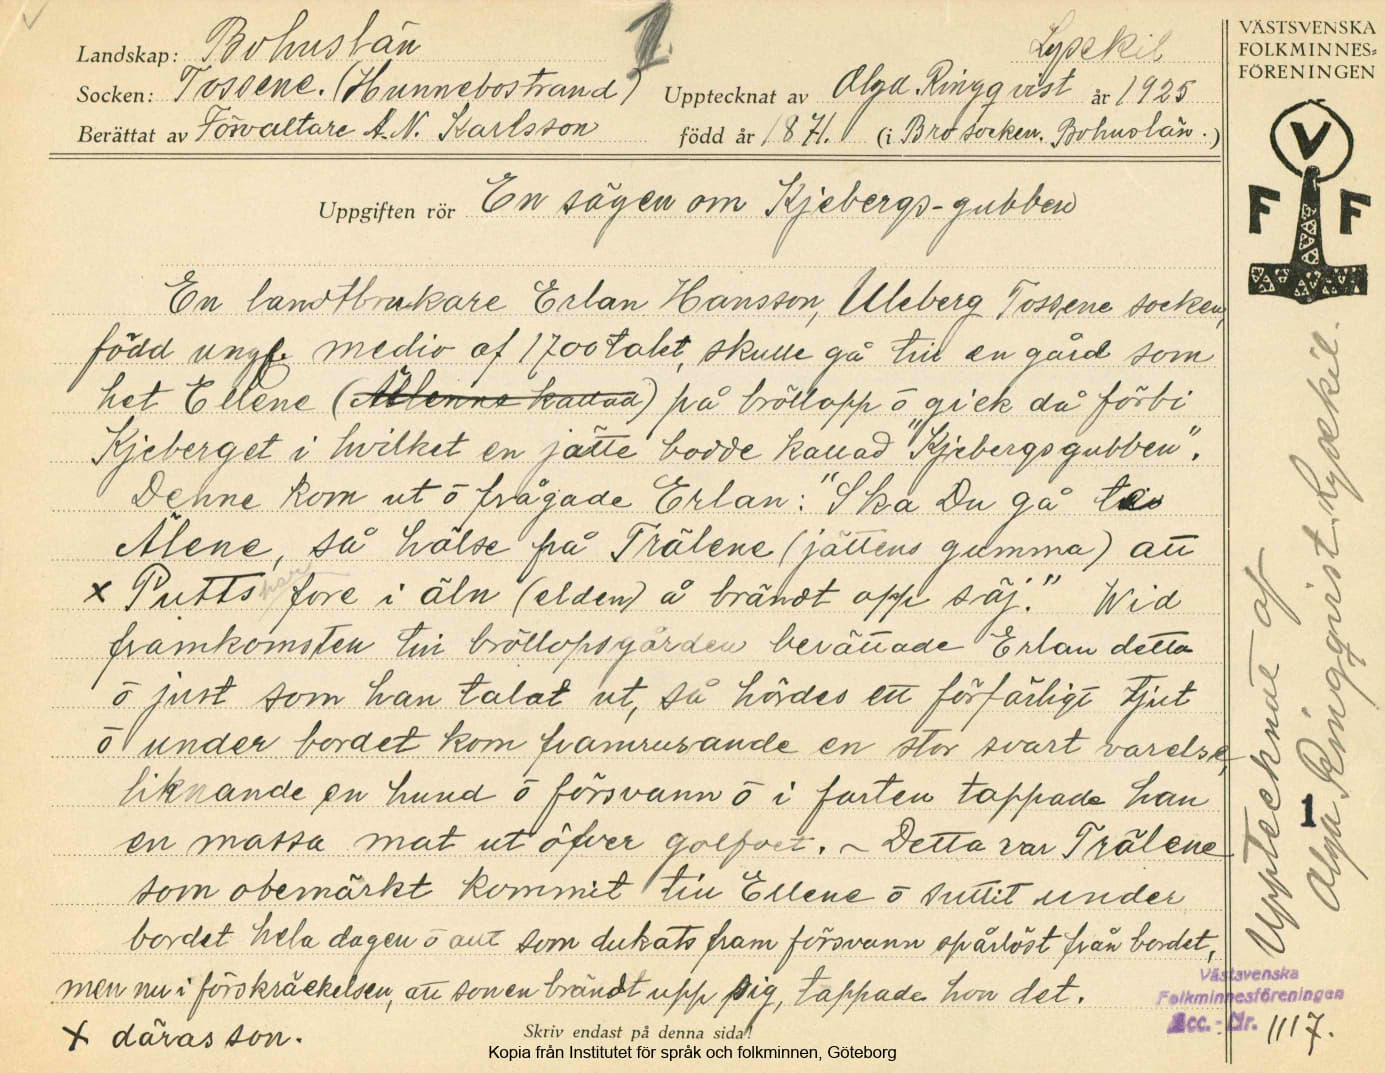 1.
Landskap: Bohuslän
Lysekil
Socken: Tossene. (Hunnebostrand) Upptecknat av Olga Ringqvist år 1925
Berättat av Förvaltare A. N. Karlsson född år 1871. (i Bro socken. Bohuslän.)
Uppgiften rör En sägen om Kjebergs-gubben
En landtbrukare Erlan Hansson, Uleberg Tossene socken,
född ungf. medio af 1700talet, skulle gå till en gård som
het Ellene (Älenne kallad) på bröllopp ō gick då förbi
Kjeberget i hvilket en jätte bodde kallad "Kjebergsgubben".
Denne kom ut ō frågade Erlan: "Ska Du gå te
Älene, så hälse på Trälene (jättens gumma) att
x Putts har fore i äln (elden) å brändt opp säj." Wid
framkomsten till bröllopsgården berättade Erlan detta
ō just som han talat ut, så hördes ett förfärligt tjut
ō under bordet kom framrusande en stor svart varelse,
liknande en hund ō försvann ō i farten tappade han
en massa mat ut öfver golfvet. ~ Detta var Trälene
som obemärkt kommit till Ellene ō suttit under
bordet hela dagen ō allt som dukats fram försvann spårlöst från bordet,
men nu i förskräckelsen, att sonen brändt upp sig, tappade hon det.
x däras son.
Skriv endast på denna sida!
VÄSTSVENSKA
FOLKMINNES-
FÖRENINGEN
V
F F
Upptecknat af
Olga Ringqvist, Lysekil.
1
Västsvenska
Folkminnesföreningen
Acc. - Nr. 1117.
Kopia från Institutet för språk och folkminnen, Göteborg